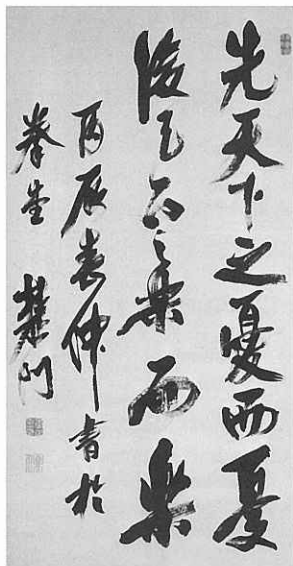 先天下之憂而憂
後天下之樂而樂
丙辰春仲書於
堂 門